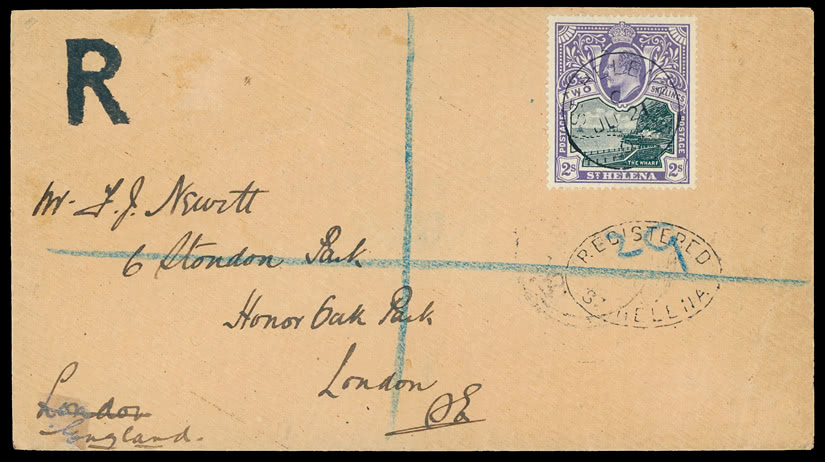 R
TWO SHILLINGS
POSTAGE POSTAGE
THE WHARF
2s ST HELENA 2s
JU 24
Mr. F. J. Newitt
6 Stondon Park
Honor Oak Park
London
SE
London
England.
29
REGISTERED
ST HELLENA